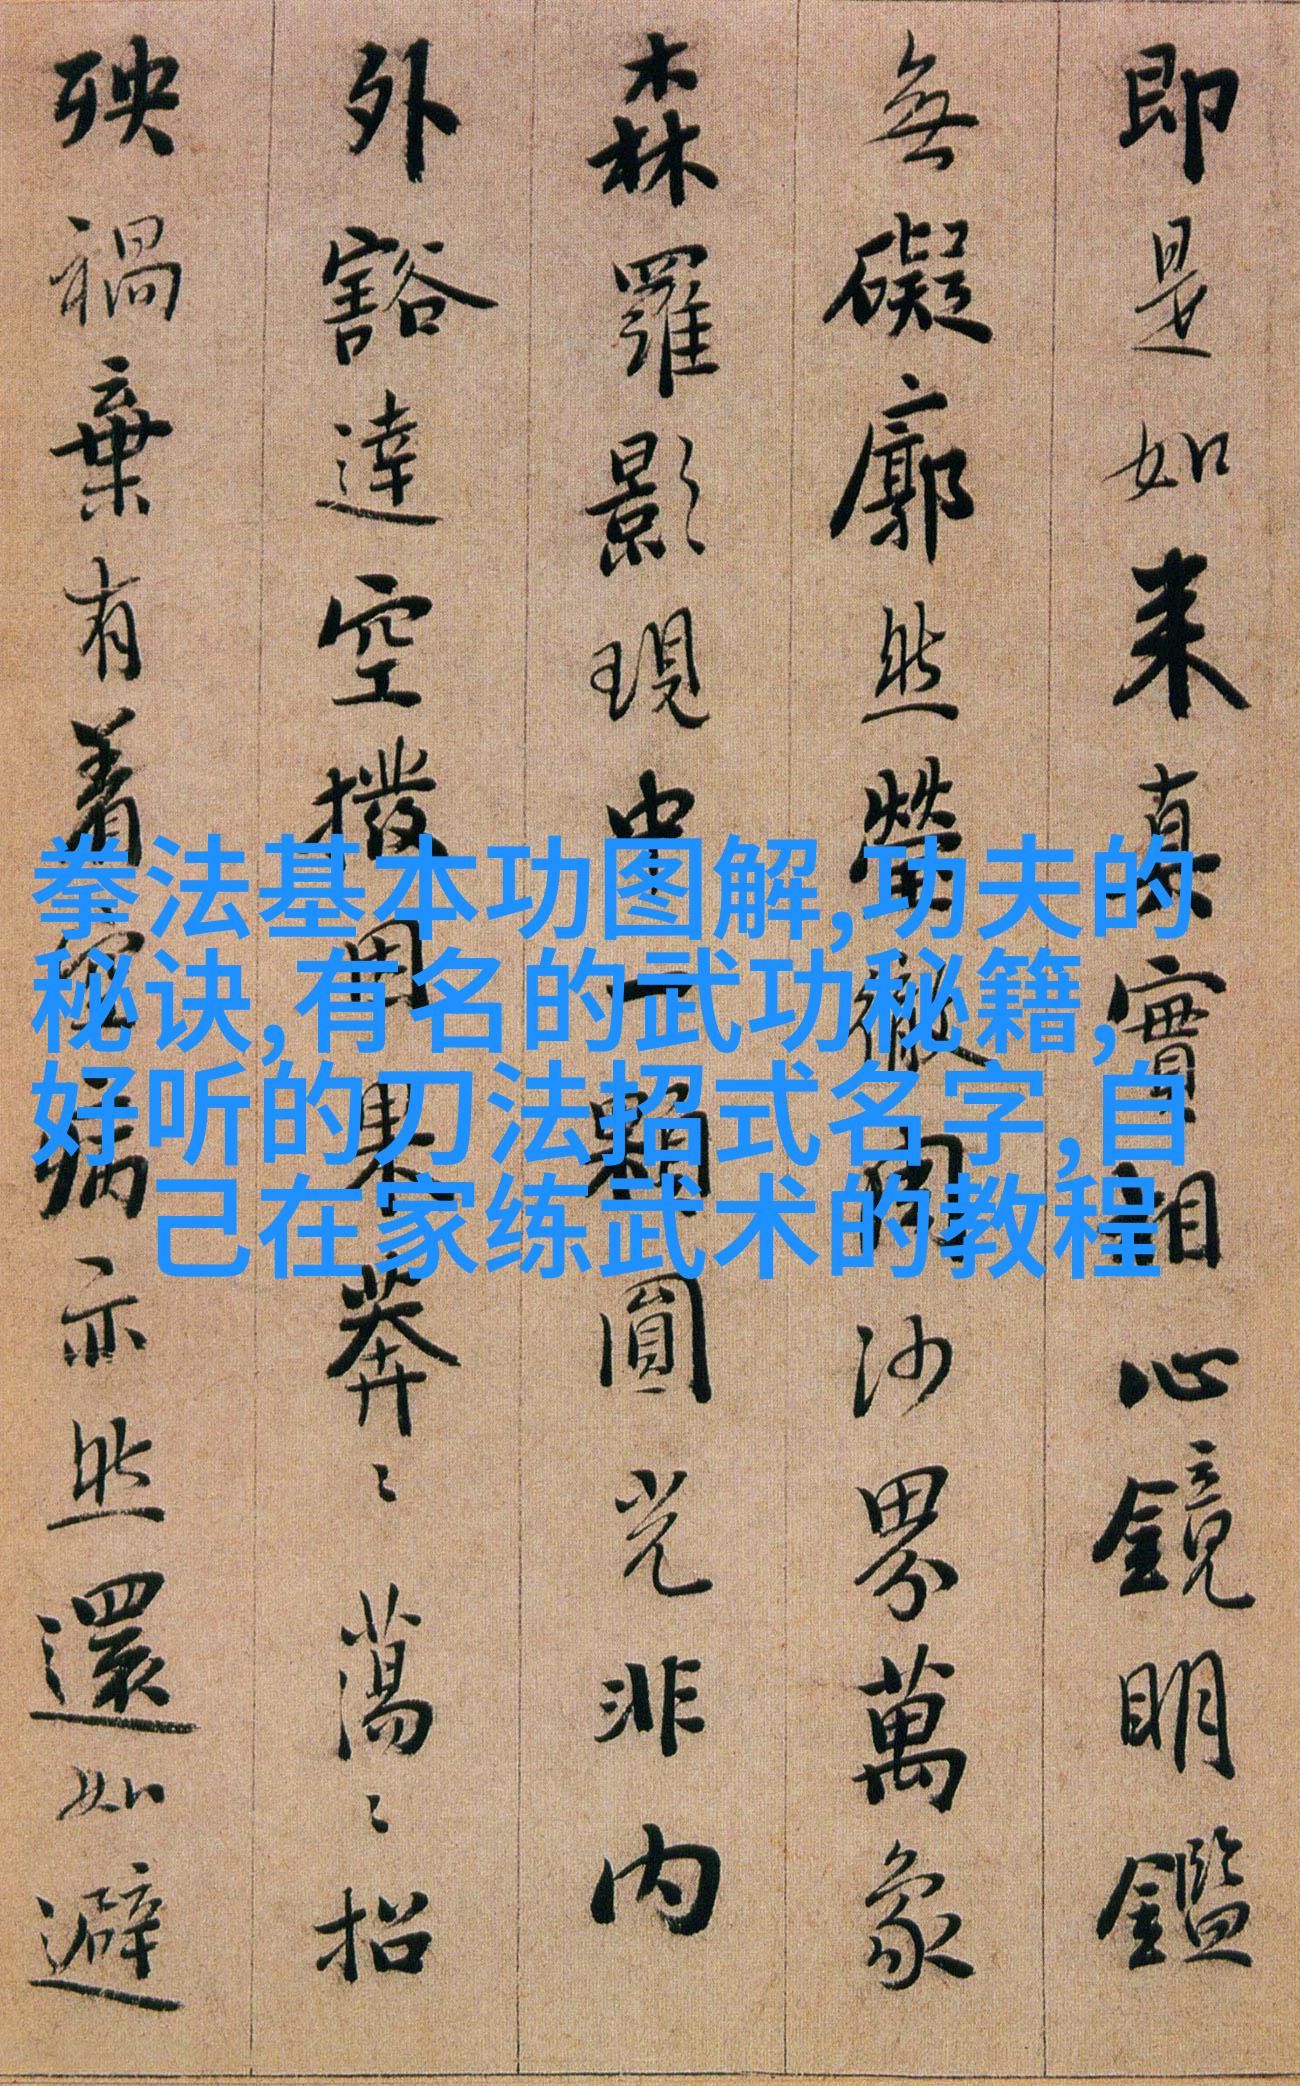 即是如来真實相心鏡明鑑
無礙廓然瑩徹周沙界萬象
森羅影現中一顆圓光非内
外豁達空撥因果莽〻蕩〻招
殃禍棄有着空病亦然還如避
拳法基本功图解,功夫的
秘诀,有名的武功秘籍,
好听的刀法招式名字,自
己在家练武术的教程